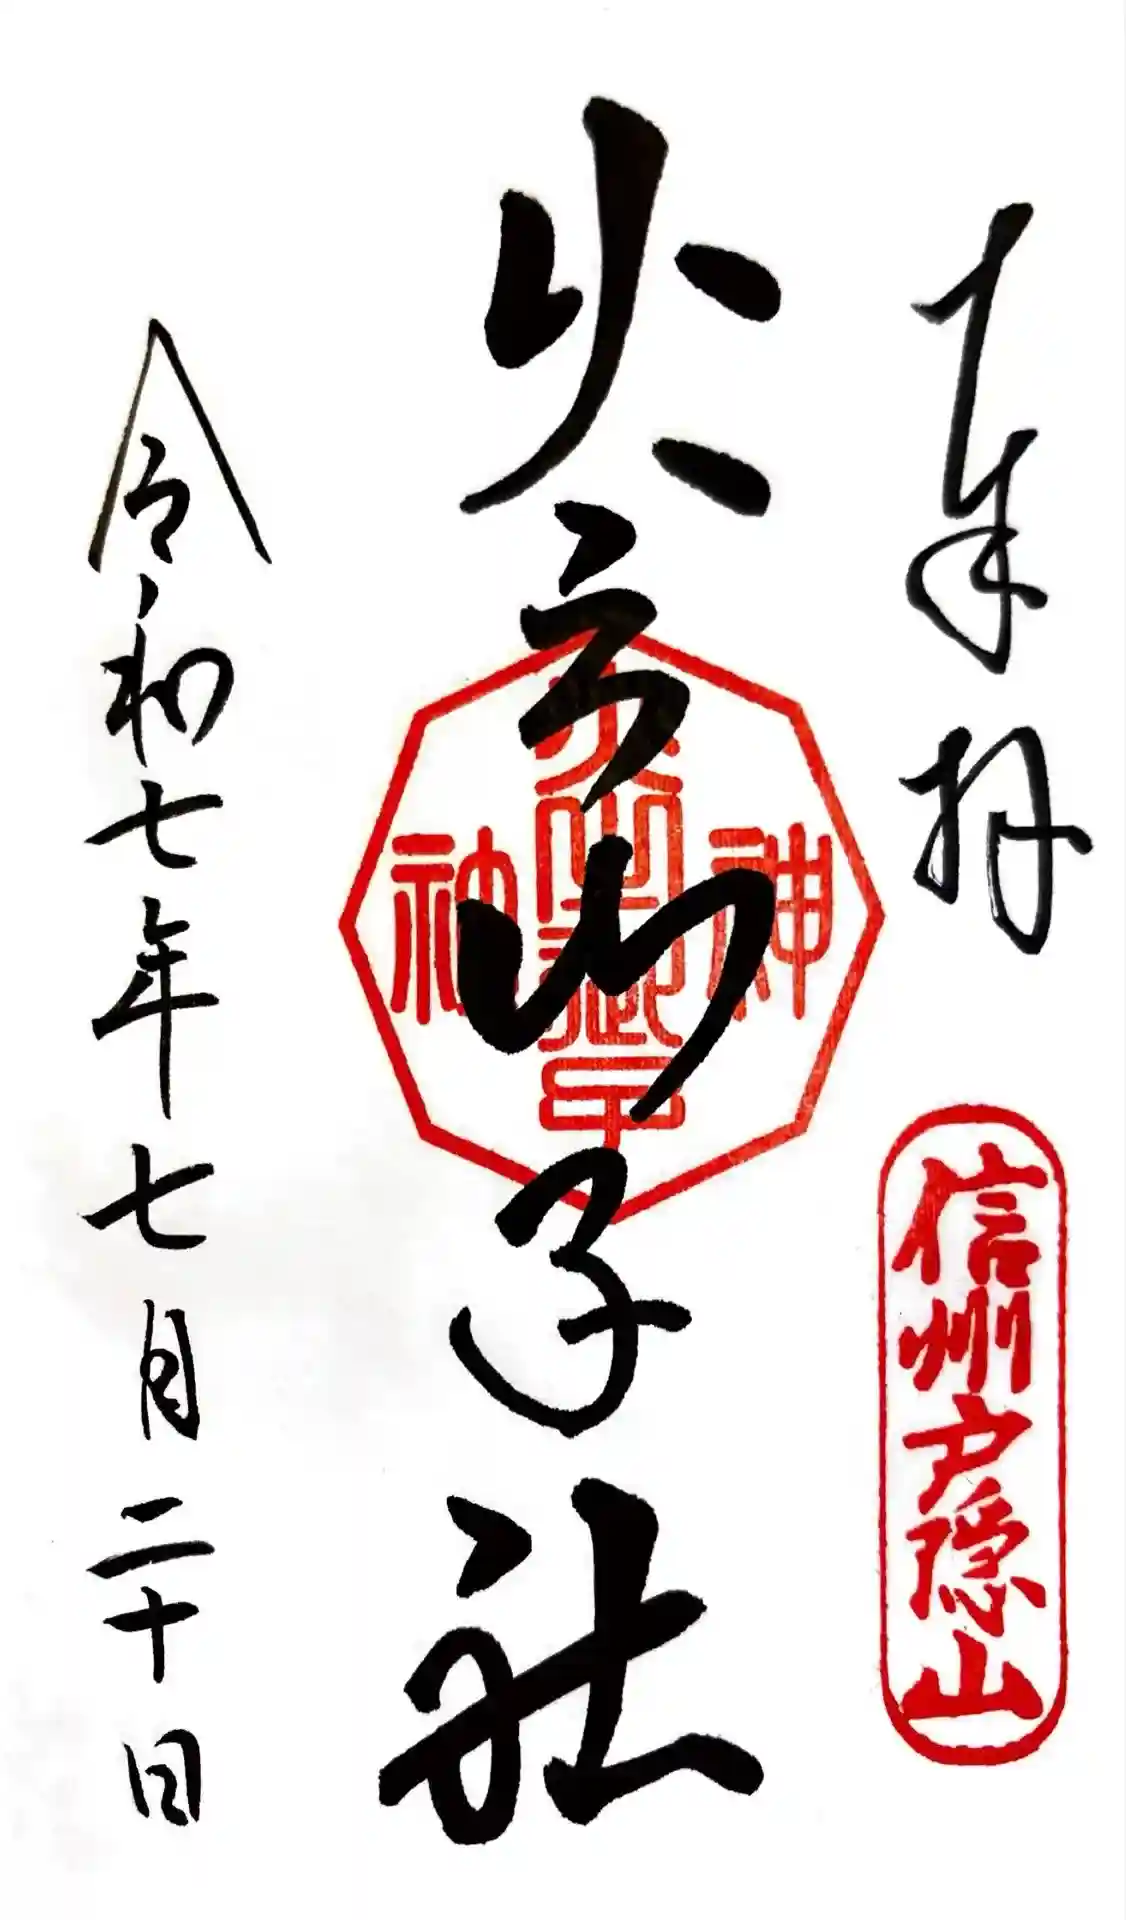 奉拝
信州戸隠山
火之御子社
火之御子
神社
令和七年七月二十日